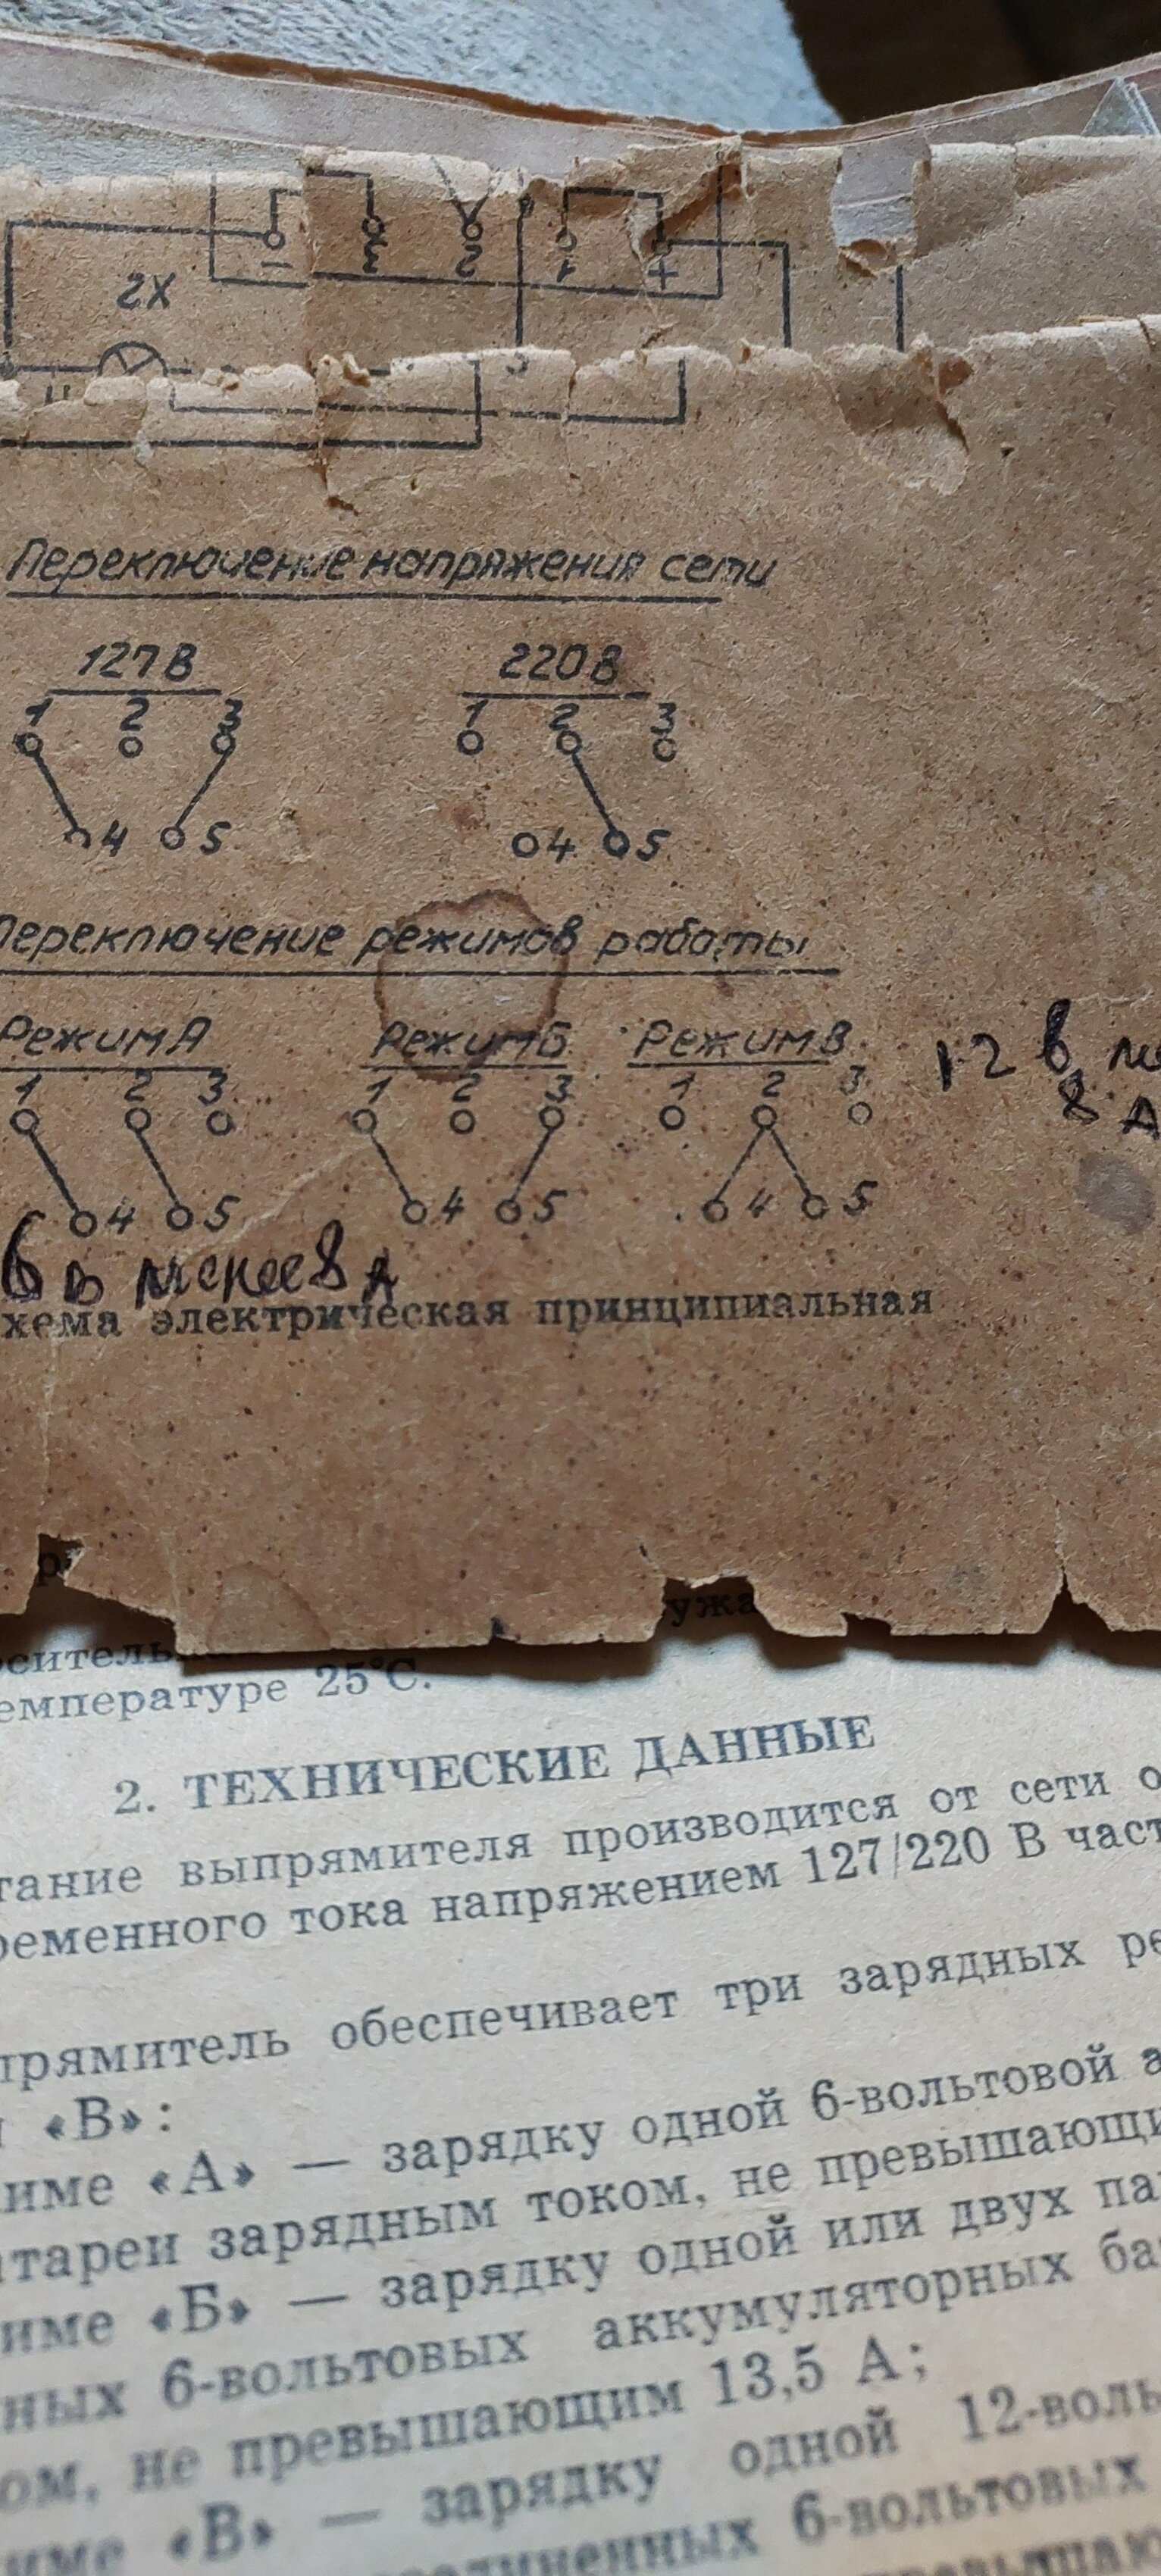 2X
− 3 2 1 +
Переключение напряжения сети
127В 220В
1 2 3 1 2 3
4 5 4 5
Переключение режимов работы
Режим А Режим Б Режим В 12 В
1 2 3 1 2 3 1 2 3 8 А
4 5 4 5 4 5
6 В менее 8 А
хема электрическая принципиальная
ужа
сительн
емпературе 25°С.
2. ТЕХНИЧЕСКИЕ ДАННЫЕ
тание выпрямителя производится от сети о
ременного тока напряжением 127/220 В част
прямитель обеспечивает три зарядных ре
и «В»:
име «А» — зарядку одной 6-вольтовой а
атареи зарядным током, не превышающи
име «Б» — зарядку одной или двух па
ных 6-вольтовых аккумуляторных ба
ом, не превышающим 13,5 А;
име «В» — зарядку одной 12-воль
единенных 6-вольтовых